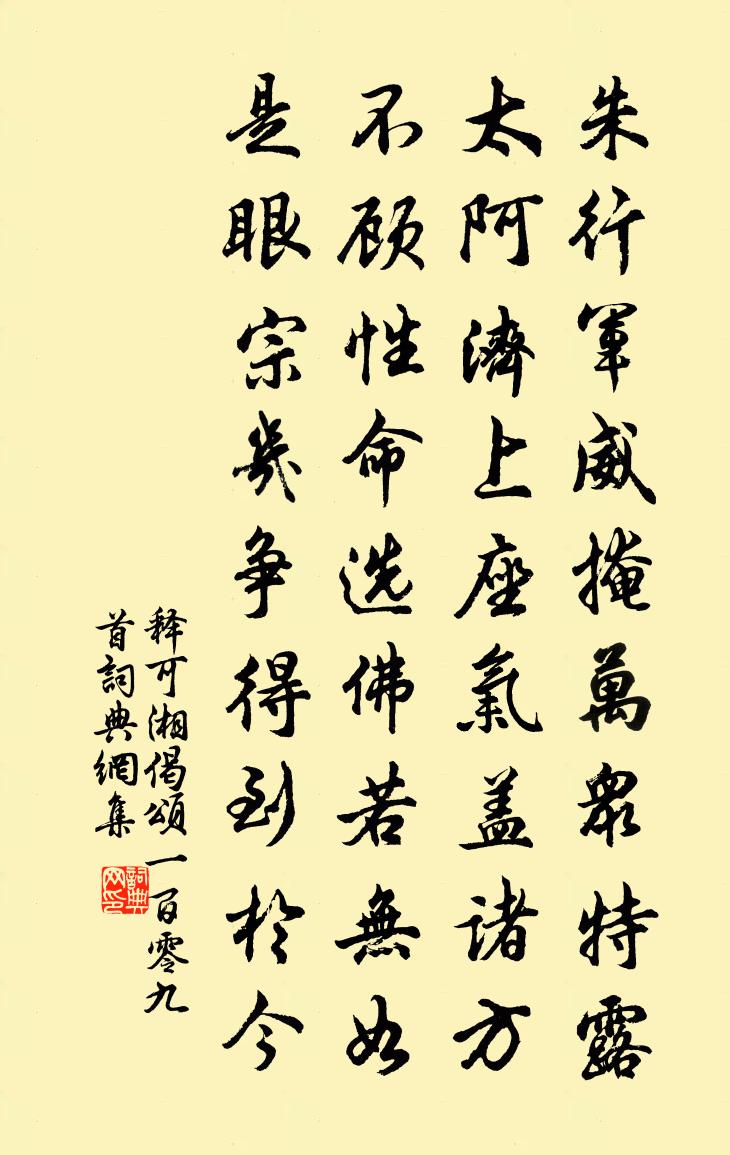 朱行軍威掩萬衆特露
太阿濟上座氣盖诸方
不顾性命选佛若無如
是眼宗幾争得到於今
释可湘偈頌一百零九
首詞典網集
詞典網印